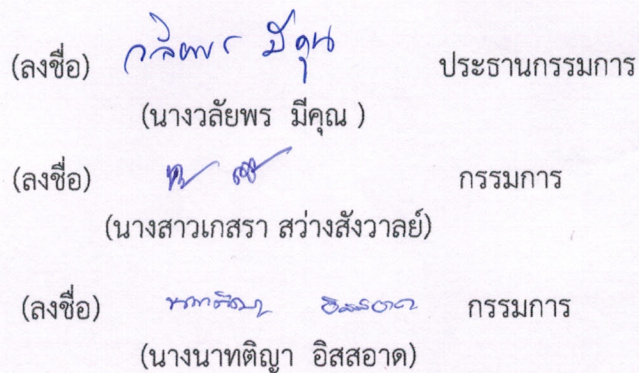 (ลงชื่อ) วลัยพร มีคุณ ประธานกรรมการ
(นางวลัยพร มีคุณ )
(ลงชื่อ) กรรมการ
(นางสาวเกสรา สว่างสังวาลย์)
(ลงชื่อ) นาทติญา อิสสอาด กรรมการ
(นางนาทติญา อิสสอาด)